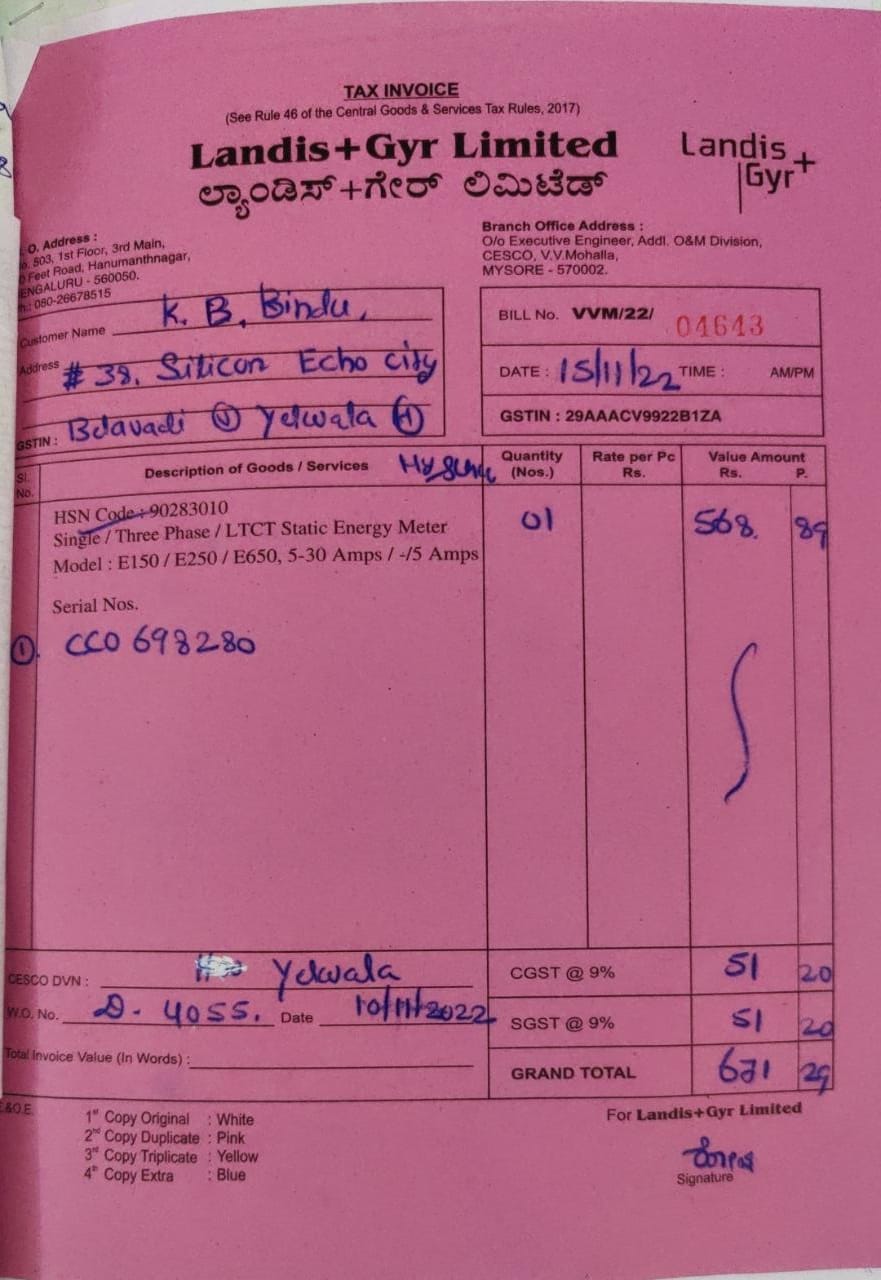 TAX INVOICE
(See Rule 46 of the Central Goods & Services Tax Rules, 2017)
Landis+Gyr Limited
ಲ್ಯಾಂಡಿಸ್+ಗೇರ್ ಲಿಮಿಟೆಡ್
Landis
Gyr+
O. Address :
503, 1st Floor, 3rd Main,
Feet Road, Hanumanthnagar,
ENGALURU - 560050.
: 080-26678515
Branch Office Address :
O/o Executive Engineer, Addl. O&M Division,
CESCO, V.V.Mohalla,
MYSORE - 570002.
Customer Name K. B. Bindu,
Address # 38, Silicon Echo city
Belavadi Yelwala (H)
GSTIN :
BILL No. VVM/22/ 04643
DATE : 15/11/22 TIME : AM/PM
GSTIN : 29AAACV9922B1ZA
Sl. No. Description of Goods / Services Quantity (Nos.) Rate per Pc Rs. Value Amount Rs. P.
HSN Code : 90283010
Single / Three Phase / LTCT Static Energy Meter 01 568. 89
Model : E150 / E250 / E650, 5-30 Amps / -/5 Amps
Serial Nos.
1. CCO 698280
CESCO DVN : Yelwala
CGST @ 9% 51 20
W.O. No. D- 4055. Date 10/11/2022
SGST @ 9% 51 20
Total Invoice Value (In Words) :
GRAND TOTAL 671 29
E&O.E.
1st Copy Original : White
2nd Copy Duplicate : Pink
3rd Copy Triplicate : Yellow
4th Copy Extra : Blue
For Landis+Gyr Limited
Signature